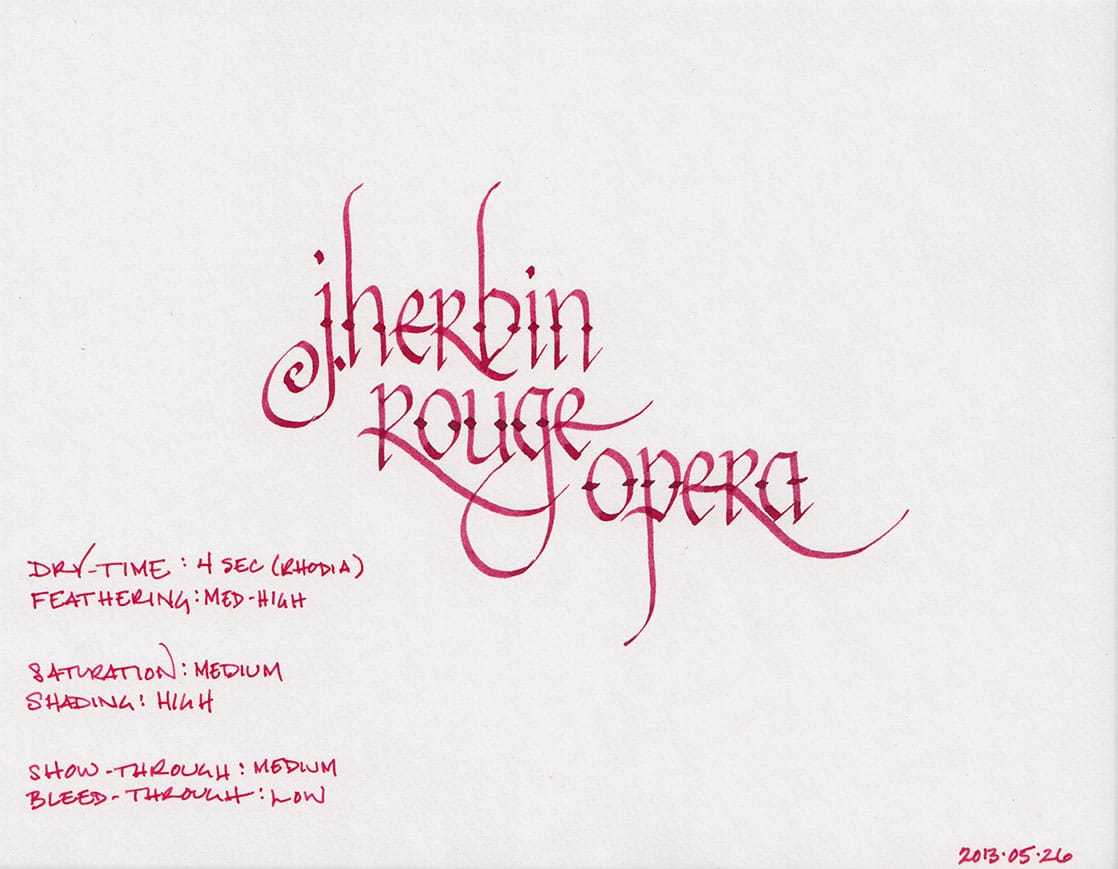 j.herbin
rouge
opera
DRY-TIME: 4 SEC (RHODIA)
FEATHERING: MED-HIGH
SATURATION: MEDIUM
SHADING: HIGH
SHOW-THROUGH: MEDIUM
BLEED-THROUGH: LOW
2013.05.26